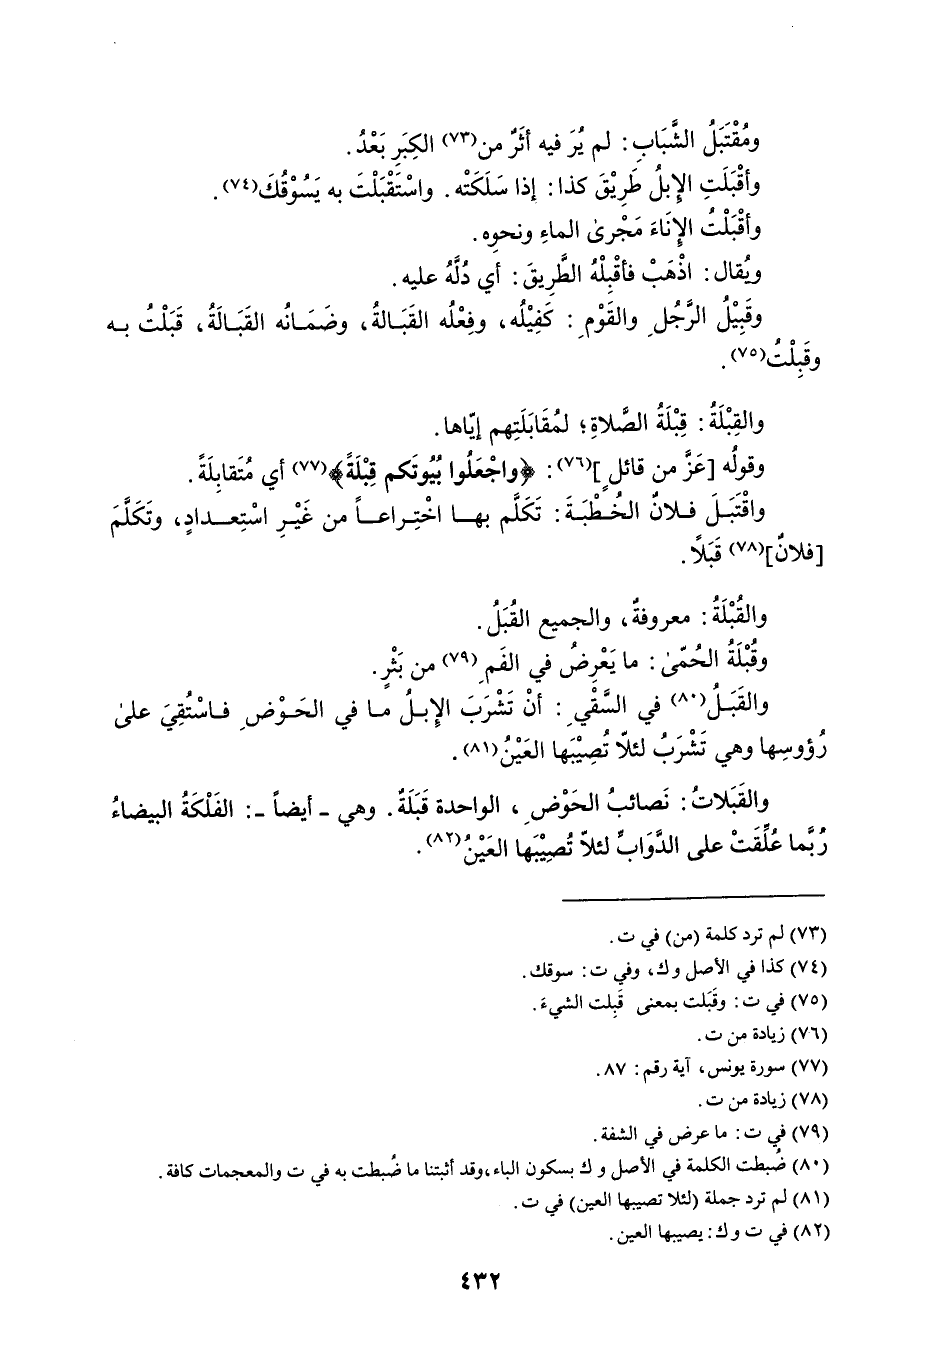 ومُقْتَبَلُ الشَّبَابِ: لم يُرَ فيه أثَرٌ من(٧٣) الكِبَرِ بَعْدُ.
وأقْبَلَتِ الإِبلُ طَرِيْقَ كذا: إذا سَلَكَتْه. واسْتَقْبَلْتَ به يَسُوْقُكَ(٧٤).
وأقْبَلْتُ الإِنَاءَ مَجْرىٰ الماءِ ونحوِه.
ويُقال: اذْهَبْ فأقْبِلْهُ الطَّرِيقَ: أي دُلَّهُ عليه.
وقَبِيْلُ الرَّجُلِ والقَوْمِ: كَفِيْلُه، وفِعْلُه القَبَالةُ، وضَمَانُه القَبَالَةُ، قَبَلْتُ به
وقَبِلْتُ(٧٥).
والقِبْلَةُ: قِبْلَةُ الصَّلاةِ؛ لمُقَابَلَتِهم إيّاها.
وقولُه [عَزَّ من قائلٍ](٧٦): ﴿واجْعَلُوا بُيُوتَكم قِبْلَةً﴾(٧٧) أي مُتَقابِلَةً.
واقْتَبَلَ فلانٌ الخُطْبَةَ: تَكَلَّم بها اخْتِراعاً من غَيْرِ اسْتِعدادٍ، وتَكَلَّمَ
[فلانٌ](٧٨) قَبَلاً.
والقُبْلَةُ: معروفةٌ، والجميع القُبَلُ.
وقُبْلَةُ الحُمّىٰ: ما يَعْرِضُ في الفَمِ(٧٩) من بَثْرٍ.
والقَبَلُ(٨٠) في السَّقْيِ: أنْ تَشْرَبَ الإِبلُ ما في الحَوْضِ فاسْتُقِيَ علىٰ
رُؤوسِها وهي تَشْرَبُ لئلّا تُصِيْبَها العَيْنُ(٨١).
والقَبَلاتُ: نَصائبُ الحَوْضِ، الواحدة قَبَلَةٌ. وهي - أيضاً -: الفَلْكَةُ البيضاءُ
رُبَّما عُلِّقَتْ على الدَّوَابِّ لئلاّ تُصِيْبَها العَيْنُ(٨٢).
(٧٣) لم ترد كلمة (من) في ت.
(٧٤) كذا في الأصل وك، وفي ت: سوقك.
(٧٥) في ت: وقَبَلت بمعنى قَبِلت الشيءَ.
(٧٦) زيادة من ت.
(٧٧) سورة يونس، آية رقم: ٨٧.
(٧٨) زيادة من ت.
(٧٩) في ت: ما عرض في الشفة.
(٨٠) ضُبطت الكلمة في الأصل و ك بسكون الباء، وقد أثبتنا ما ضُبطت به في ت والمعجمات كافة.
(٨١) لم ترد جملة (لئلا تصيبها العين) في ت.
(٨٢) في ت و ك: يصيبها العين.
٤٣٢